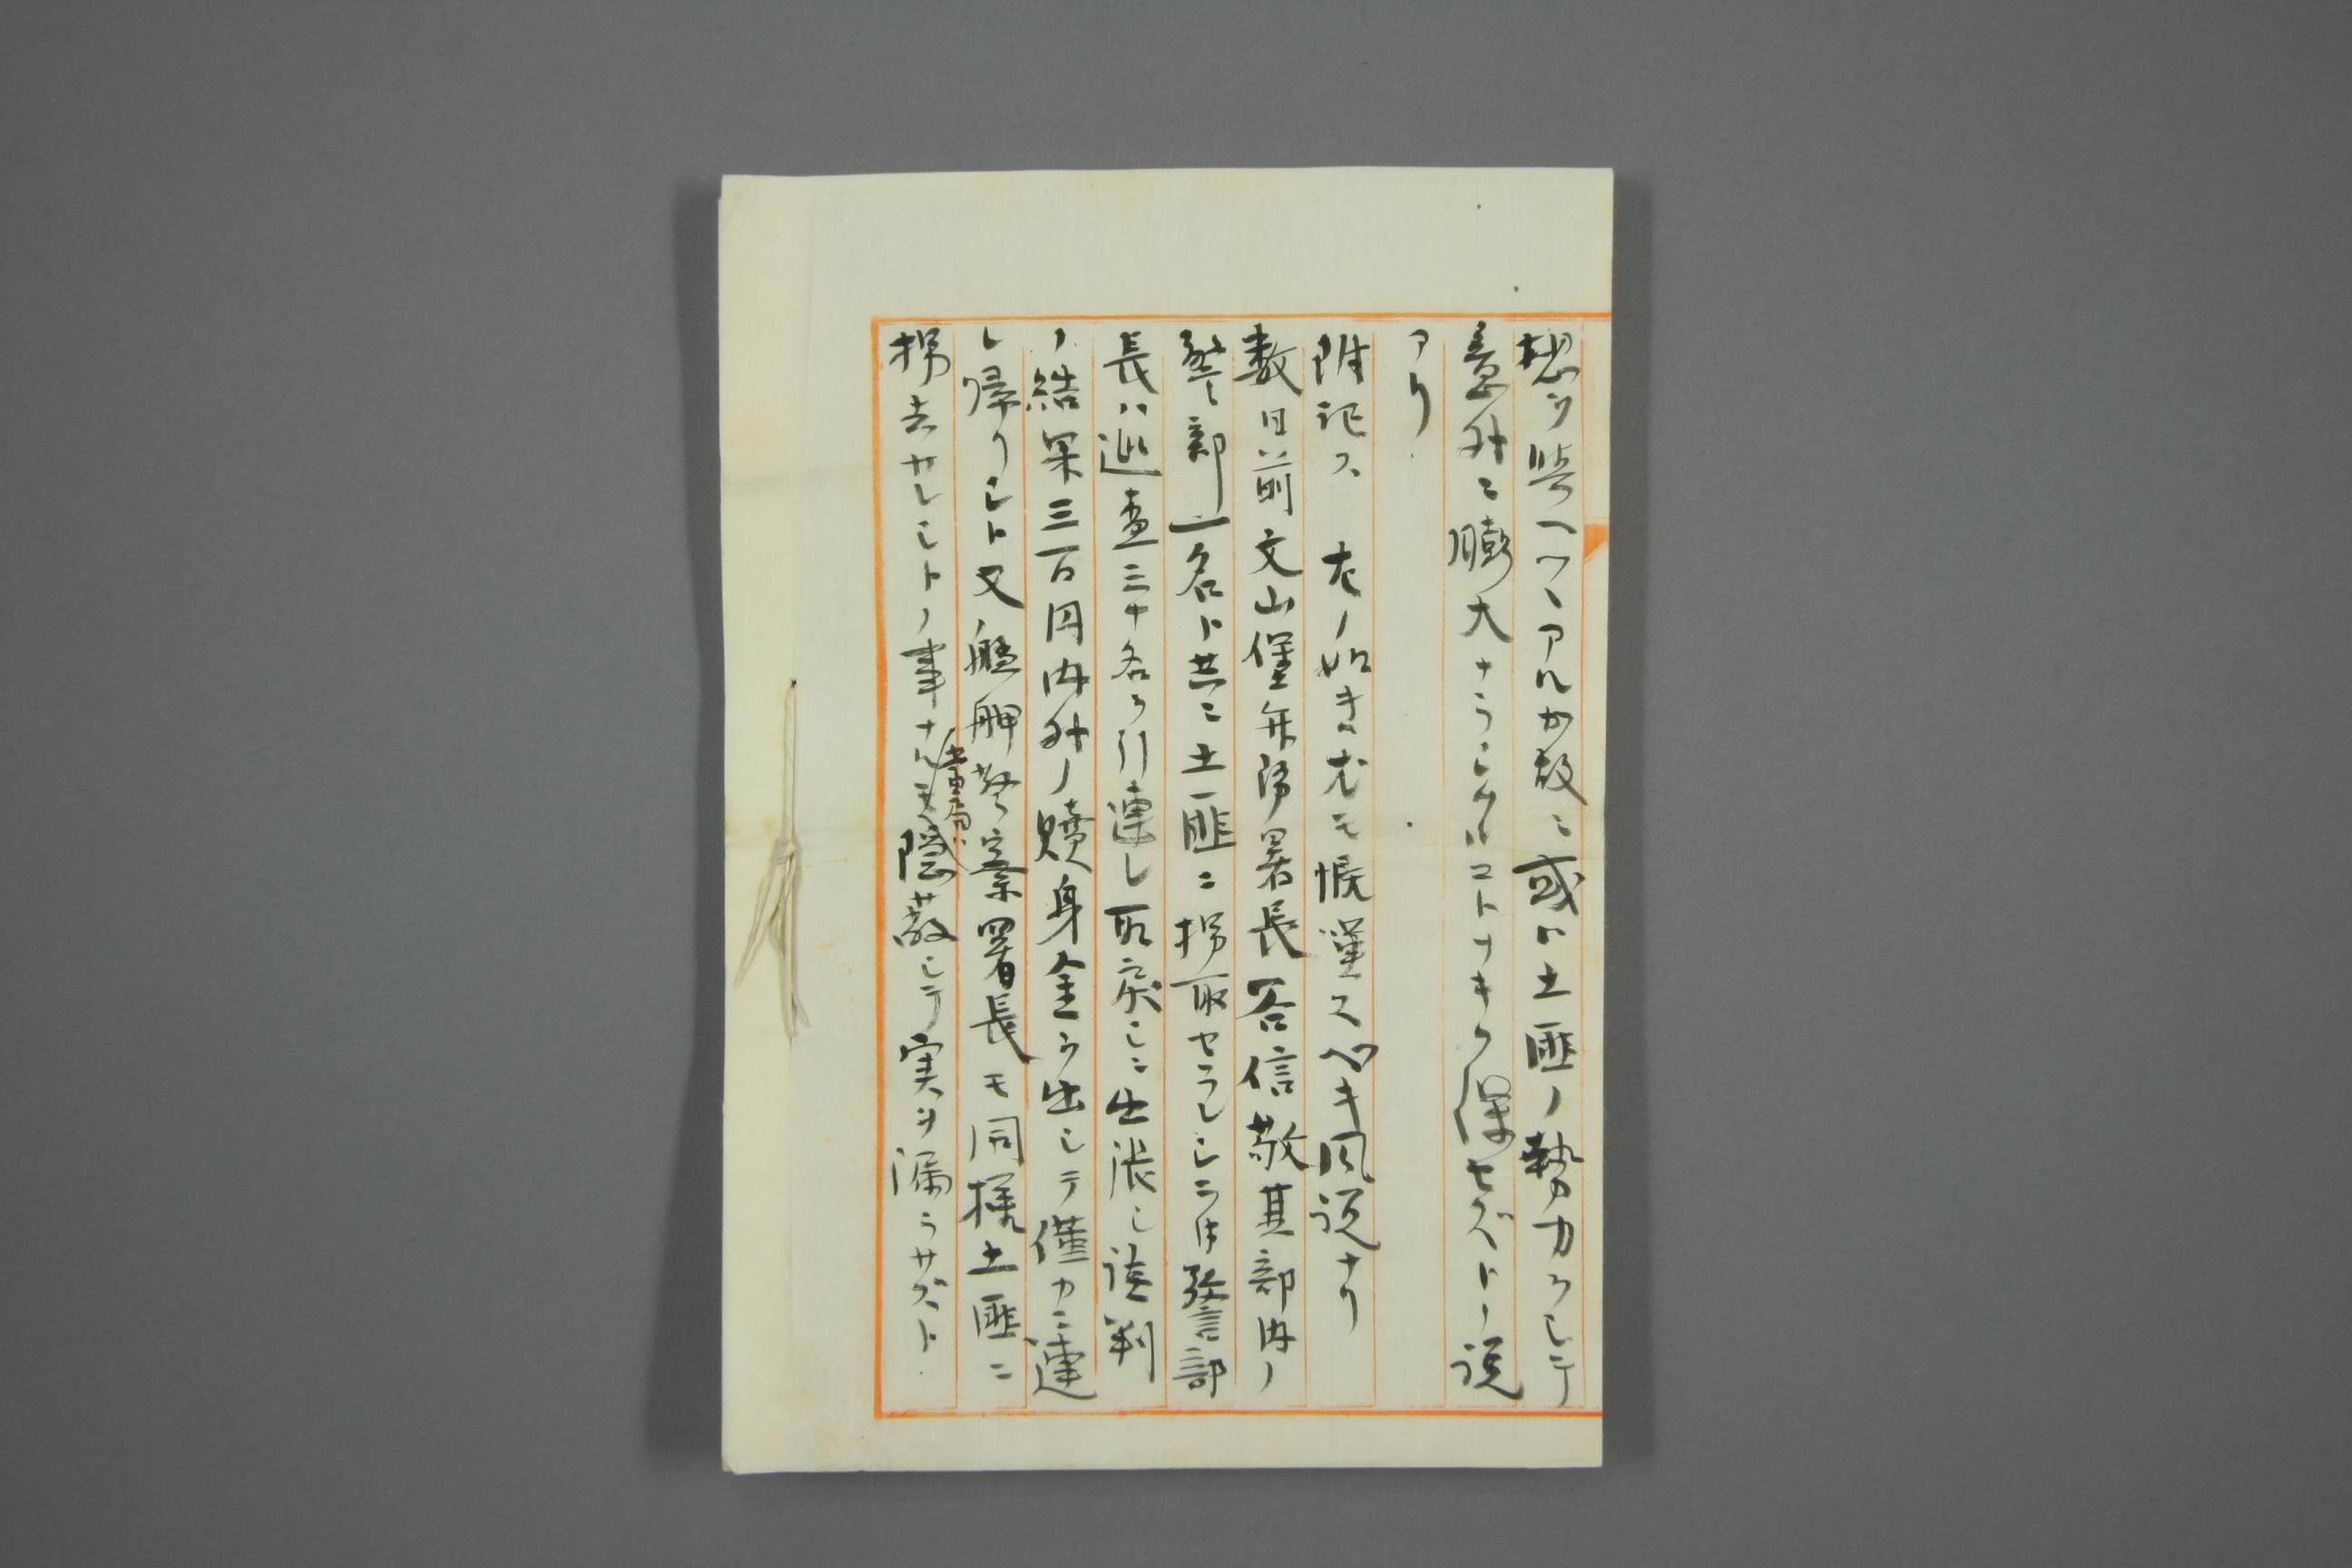 想ヲ貯ヘツヽアルカ故ニ或ハ土匪ノ勢力ヲシテ
意外ニ膨大ナラシムルコトナキヲ保セズトノ説
アリ
附記ス 左ノ如キ尤モ慨嘆スヘキ風説ナリ
数日前文山堡弁務署長谷信敬其部内ノ
警部一名ト共ニ土匪ニ拐取セラレシニ付警部
長ハ巡査三十名ヲ引連レ取戻シニ出張シ談判
ノ結果三百円内外ノ贖身金ヲ出シテ僅カニ連
レ帰リシト又艋舺警察署長モ同様土匪ニ
拐去サレシトノ事ナルモ当局ハ隠蔽シテ実ヲ漏ラサズト